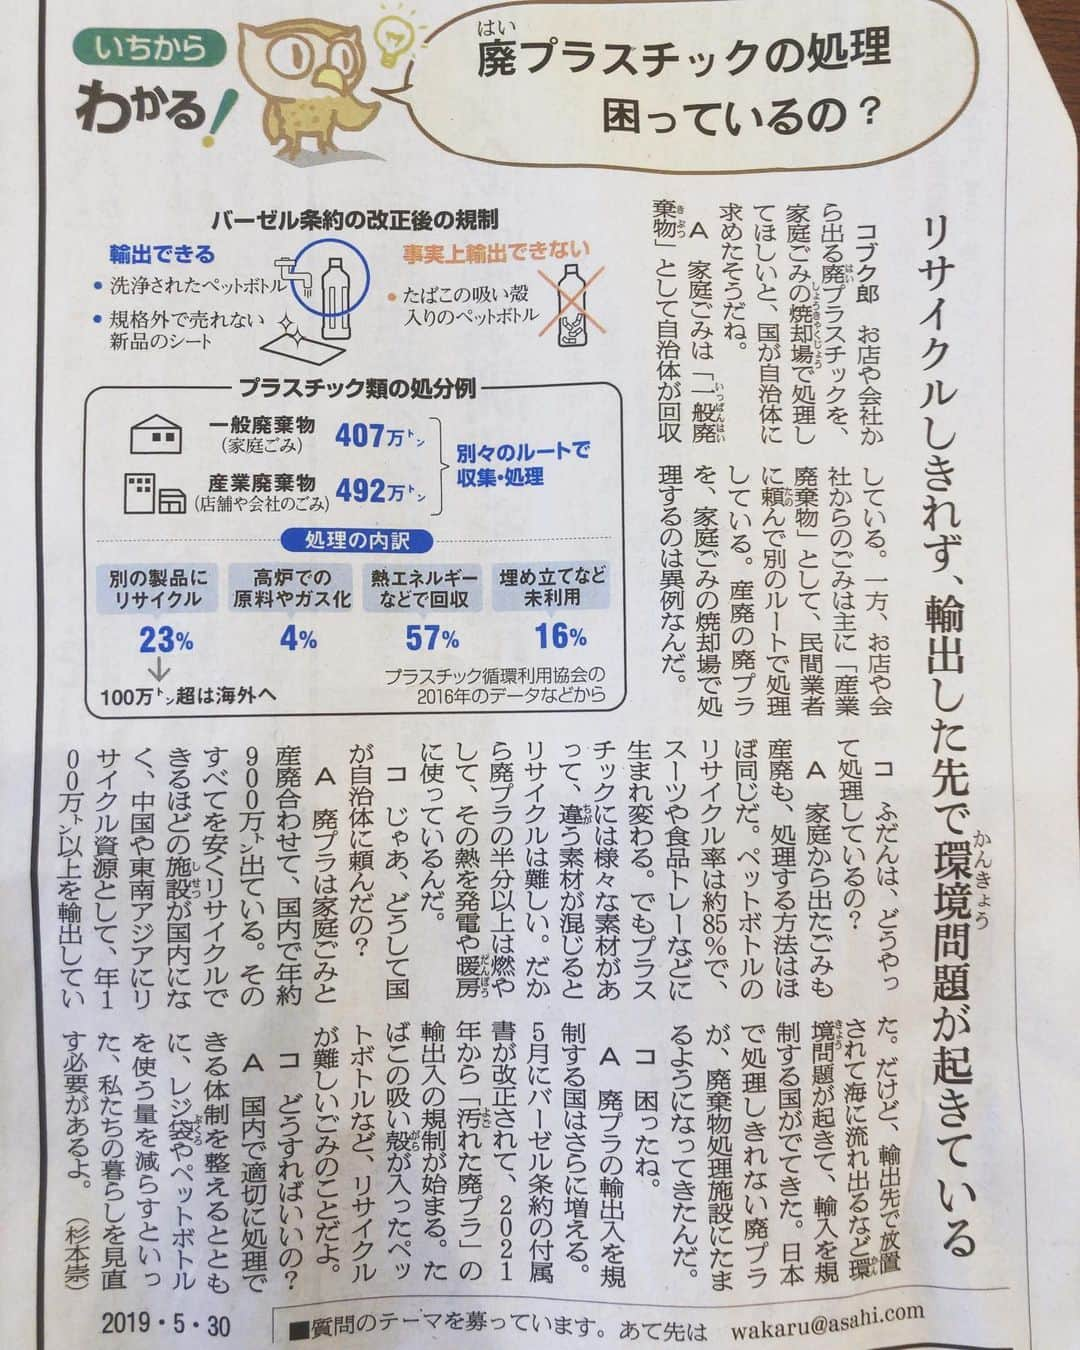 いちから
わかる!
廃プラスチックの処理
困っているの?
リサイクルしきれず、輸出した先で環境問題が起きている
バーゼル条約の改正後の規制
輸出できる
・洗浄されたペットボトル
・規格外で売れない
新品のシート
事実上輸出できない
・たばこの吸い殻
入りのペットボトル
プラスチック類の処分例
一般廃棄物
(家庭ごみ)
407万トン
産業廃棄物
(店舗や会社のごみ)
492万トン
別々のルートで
収集・処理
処理の内訳
別の製品に
リサイクル
23%
100万トン超は海外へ
高炉での
原料やガス化
4%
熱エネルギー
などで回収
57%
埋め立てなど
未利用
16%
プラスチック循環利用協会の
2016年のデータなどから
コブク郎 お店や会社か
ら出る廃プラスチックを、
家庭ごみの焼却場で処理し
てほしいと、国が自治体に
求めたそうだね。
A 家庭ごみは「一般廃
棄物」として自治体が回収
している。一方、お店や会
社からのごみは主に「産業
廃棄物」として、民間業者
に頼んで別のルートで処理
している。産廃の廃プラ
を、家庭ごみの焼却場で処
理するのは異例なんだ。
コ ふだんは、どうやっ
て処理しているの?
A 家庭から出たごみも
産廃も、処理する方法はほ
ぼ同じだ。ペットボトルの
リサイクル率は約85%で、
スーツや食品トレーなどに
生まれ変わる。でもプラス
チックには様々な素材があ
って、違う素材が混じると
リサイクルは難しい。だか
ら廃プラの半分以上は燃や
して、その熱を発電や暖房
に使っているんだ。
コ じゃあ、どうして国
が自治体に頼んだの?
A 廃プラは家庭ごみと
産廃合わせて、国内で年約
900万トン出ている。その
すべてを安くリサイクルで
きるほどの施設が国内にな
く、中国や東南アジアにリ
サイクル資源として、年1
00万トン以上を輸出してい
た。だけど、輸出先で放置
されて海に流れ出るなど環
境問題が起きて、輸入を規
制する国がでてきた。日本
で処理しきれない廃プラ
が、廃棄物処理施設にたま
るようになってきたんだ。
コ 困ったね。
A 廃プラの輸出入を規
制する国はさらに増える。
5月にバーゼル条約の付属
書が改正されて、2021
年から「汚れた廃プラ」の
輸出入の規制が始まる。た
ばこの吸い殻が入ったペッ
トボトルなど、リサイクル
が難しいごみのことだよ。
コ どうすればいいの?
A 国内で適切に処理で
きる体制を整えるととも
に、レジ袋やペットボトル
を使う量を減らすといっ
た、私たちの暮らしを見直
す必要があるよ。
(杉本崇)
2019・5・30
■質問のテーマを募っています。あて先は wakaru@asahi.com